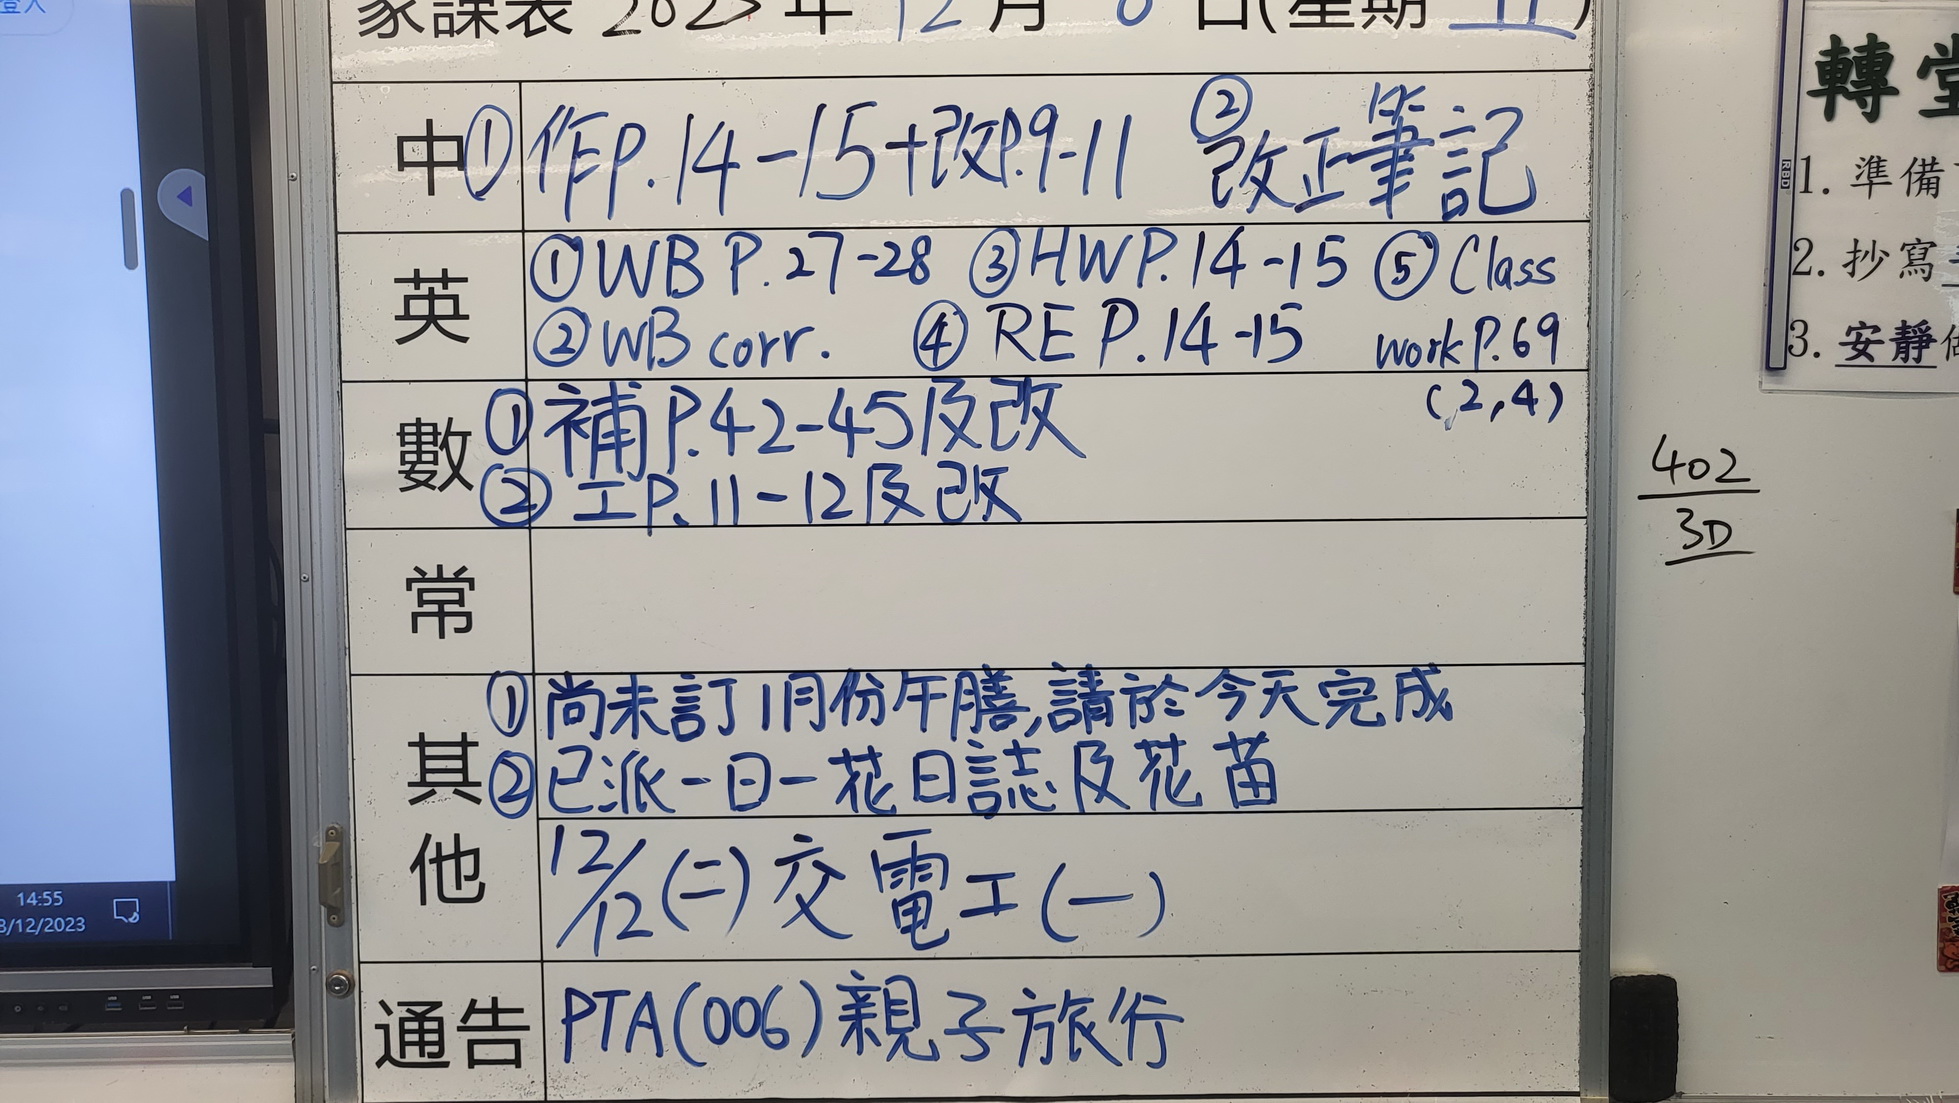 登入
家課表 2023 年 12 月 8 日(星期 五)
中 ① 作P.14-15+改P.9-11 ② 改正筆記
英 ① WB P.27-28 ③ HW P.14-15 ⑤ Class
② WB corr. ④ RE P.14-15 work P.69
(2,4)
數 ① 補P.42-45及改
② 工P.11-12及改
常
其他 ① 尚未訂1月份午膳,請於今天完成
② 已派一日一花日誌及花苗
12/12(二)交電工(一)
通告 PTA(006)親子旅行
14:55
8/12/2023
402
3D
轉堂
1. 準備
2. 抄寫
3. 安靜